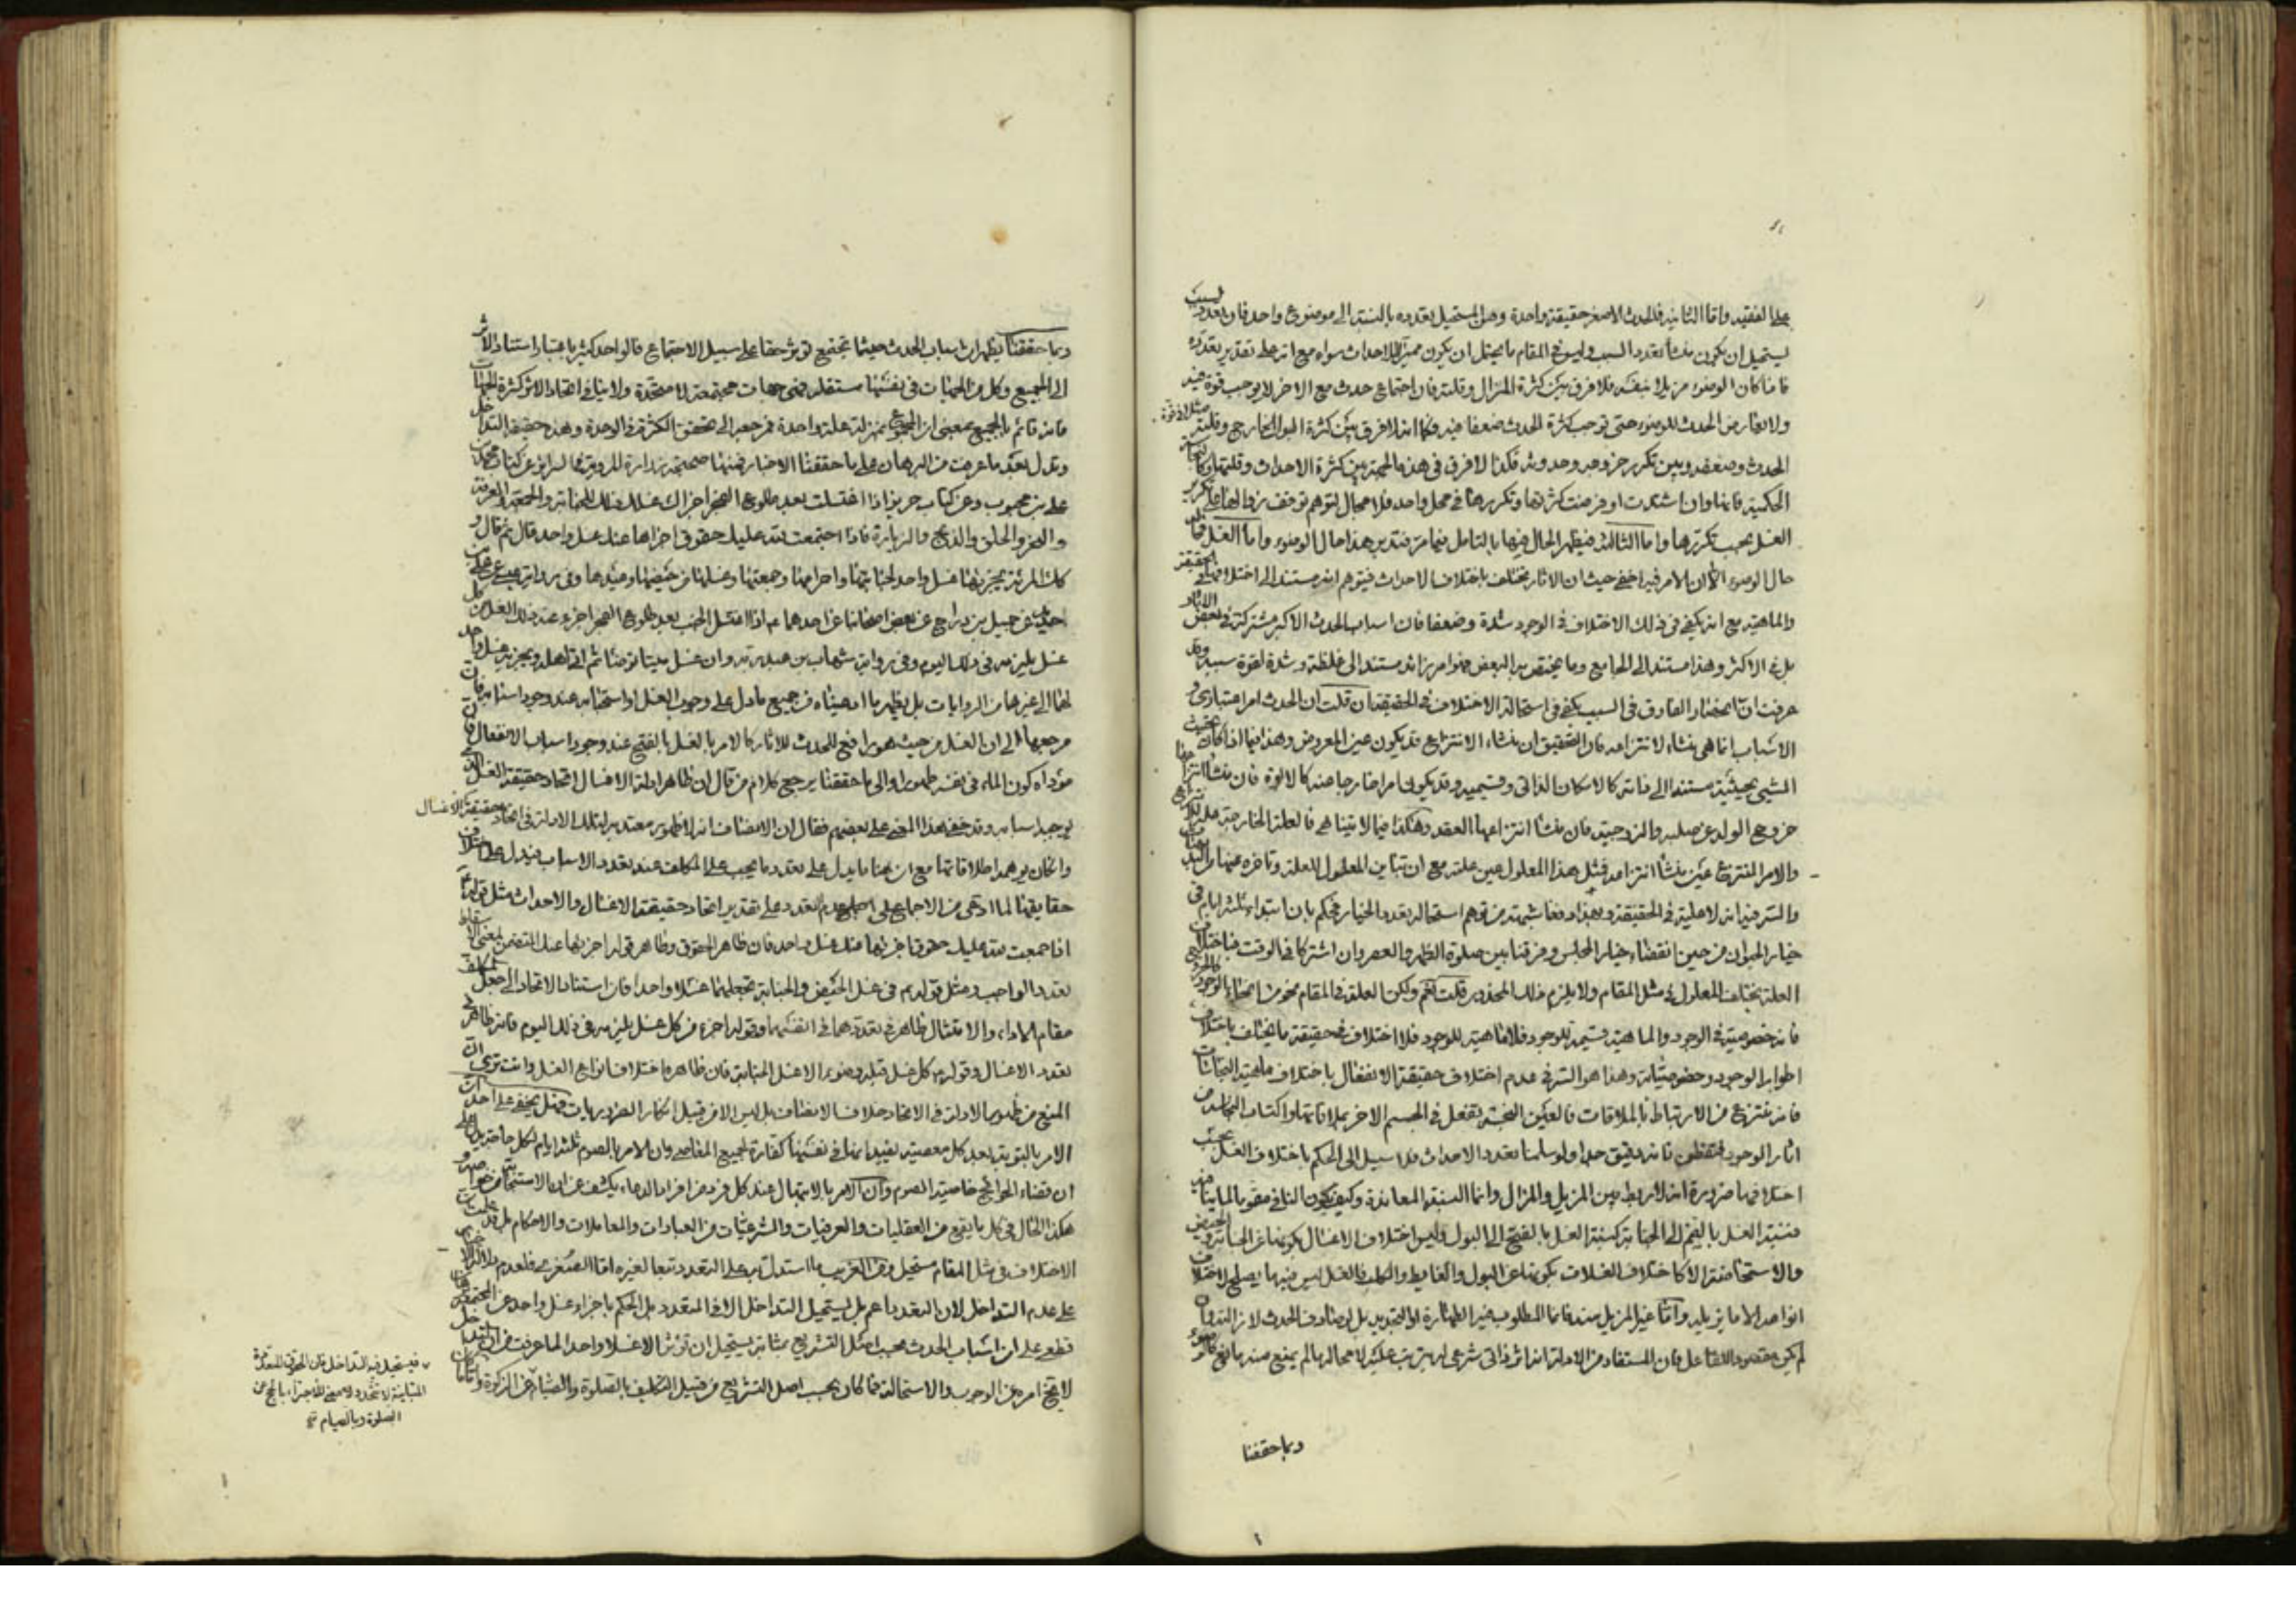 على الفقيه واما الثانية فالحدث الاصغر حقيقة واحدة ومن المستحيل تعدده بالنسبة الى موضوع واحد فان تعدد السبب
يستحيل ان يكون منشأ لتعدد المسبب وليس في المقام ما يحتمل ان يكون مميزا للاحداث سواه مع انه على تقدير تعدده
فاذا كان الوضوء مزيلا بنفسه فلا فرق بين كثرة المزال وقلته فان اجتماع حدث مع الاخر لا يوجب قوة فيه
ولا انه من الحدث للوضوء حتى توجب كثرة الحدث ضعفا فيه فكما انه لا فرق بين كثرة البول الخارج وقلته
الحدث وضعفه وبين تكرر خروجه وحدوثه فكذا لا فرق في هذه الجهة بين كثرة الاحداث وقلتها وكالنجاسة
الحكمية فانها وان اشتدت او فرضت كثرتها وتكررها في محل واحد فلا مجال لتوهم توقف زوالها على تكرير
الغسل بحسب تكررها واما الثالثة فيظهر الحال فيها بالتامل فيما مر فتدبر هذا حال الوضوء واما الغسل
حال الوضوء الا ان الامر فيه اخفى حيث ان الاثار تختلف باختلاف الاحداث فيتوهم انه مستند الى اختلافها في الحقيقة
والماهية مع انه يكفي في ذلك الاختلاف في الوجود شدة وضعفا فان اسباب الحدث الاكبر مشتركة في بعض الاثار
بل في الاكثر وهذا مستند الى الجامع وما يختص به البعض فهو امر زائد مستند الى غلظة وشدة لقوة سببه وقد
عرفت ان انحصار الفارق في السبب يكفي في استحالة الاختلاف في الحقيقة ان قلت ان الحدث امر اعتباري و
الاسباب انما هي منشاء لانتزاعه فان التحقيق ان منشاء الانتزاع قد يكون عين المعروض وهذا فيما اذا كان
الشيئ بحيثية مستندا الى ذاته كالامكان الذاتي وقسيميه وقد يكون امرا خارجا عنه كالابوة فان منشأ انتزاعها
خروج الولد عن صلبه والزوجية فان منشأ انتزاعها العقد وهكذا فيما لا يتناهى فالعلة الخارجة علة
والامر المنتزع عين منشأ انتزاعه فمثل هذا المعلول عين علته مع ان تباين المعلول للعلة وتاخره عنها
والسر فيه انه لا علية في الحقيقة وبهذا دفعنا شبهة من توهم استحالة تعدد الخيار فحكم بان ابتداء ثلثة ايام في
خيار الحيوان من حين انقضاء خيار المجلس وفرقنا بين صلوة الظهر والعصر وان اشتركا في الوقت
العلة يختلف المعلول في مثل المقام ولا يلزم ذلك المحذور قلت نعم ولكن العلة في المقام نحو من انحاء الوجود
فانه خصوصية في الوجود والماهية قسيمة للوجود فلا ماهية للوجود فلا اختلاف في حقيقة ما يختلف باختلاف
اطوار الوجود وخصوصياته وهذا هو السر في عدم اختلاف حقيقة الانفعال باختلاف ماهية النجاسات
فانه ينتزع من الارتباط بالملاقات فالعين النجسة تفعل في الجسم الاخر بملاقاتها واكتساب النجاسة من
اثار الوجود فتفطن فانه دقيق جدا ولو سلمنا تعدد الاحداث فلا سبيل الى الحكم باختلاف الغسل بحسب
اختلافها ضرورة انه لا ربط بين المزيل والمزال وانما النسبة المعاندة وكيف يكون النافي مقوما لما ينافيه
فنسبة الغسل بالضم الى الجنابة كنسبة الغسل بالفتح الى البول وليس اختلاف الاغسال بكونها عن الجنابة والحيض
والاستحاضة الا كاختلاف الغسلات بكونها عن البول والغايط والكلب فالغسل ليس فيها ما يصلح لاختلاف
انواعه الا ما يزيله واما غير المزيل منه فانما المطلوب فيه الطهارة او التجديد بل لو صادف الحدث لازاله وان
لم يكن مقصودا للفاعل فان المستفاد من الادلة انه اثر ذاتي شرعي له يترتب عليه لا محالة ما لم يمنع منه مانع
وبما حققنا
وبما حققنا يظهر ان اسباب الحدث حيثما تجتمع توثر حقا على سبيل الاجتماع فالواحد كثير باعتبار استناد الاثر
الى الجميع وكل من الجهات في نفسها مستقلة فهي جهات مجتمعة لا متحدة ولا ينافي اتحاد الاثر كثرة الجهات
فانه قائم بالجميع بمعنى ان المجموع بمنزلة علة واحدة فمرجعه الى تحقق الكثرة في الوحدة وهذه حقيقة التداخل
وتدل بعد ما عرفت من البرهان على ما حققنا الاخبار فمنها صحيحة زرارة المروية عن السرائر عن كتاب محمد بن
علي بن محبوب وعن كتاب حريز اذا اغتسلت بعد طلوع الفجر اجزاك غسلك ذلك للجنابة والجمعة وعرفة
والنحر والحلق والذبح والزيارة فاذا اجتمعت لله عليك حقوق اجزاها عنك غسل واحد قال ثم قال و
كذلك المرئة يجزيها غسل واحد لجنابتها واحرامها وجمعتها وغسلها من حيضها وعيدها وفي رواية علي بن
حديد عن جميل بن دراج عن بعض اصحابنا عن احدهما ع اذا اغتسل الجنب بعد طلوع الفجر اجزء عنه ذلك الغسل من كل
غسل يلزمه في ذلك اليوم وفي رواية شهاب بن عبد ربه وان غسل ميتا توضأ ثم اتى اهله ويجزيه غسل واحد
لهما الى غيرها من الروايات بل يظهر ما ادعيناه من جميع ما دل على وجوب الغسل او استحبابه عند وجود اسبابه فان
مرجعها الى ان الغسل من حيث هو رافع للحدث للاثار كالامر بالغسل بالفتح عند وجود اسباب الانفعال
مؤداه كون الماء في نفسه طهورا والى ما حققنا يرجع كلام من قال ان ظاهر ادلة الاغسال اتحاد حقيقة الغسل
بوجود اسبابه وقد خفي هذا المعنى على بعضهم فقال ان الانصاف انه لا ظهور معتد به لتلك الادلة في اتحاد حقيقة الاغسال
وان كان يوهمه اطلاقاتها مع ان هنا ما يدل على تعدد ما يجب على المكلف عند تعدد الاسباب فيدل على اختلاف
حقايقها لما ادعى من الاجماع على عدم التعدد على تقدير اتحاد حقيقة الاغسال والاحداث مثل قوله ع
اذا اجتمعت لله عليك حقوق اجزئها عنك غسل واحد فان ظاهر الحقوق وظاهر قوله اجزئها عنك المتضمن لمعنى الاسقاط
تعدد الواجب ومثل قوله ع في غسل الحيض والجنابة تجعلهما غسلا واحدا فان استناد الاتحاد الى جعل المكلف
مقام الاداء والامتثال ظاهر في تعددهما في انفسهما وقوله اجزء من كل غسل يلزمه في ذلك اليوم فانه ظاهر في
تعدد الاغسال وقوله ع كل غسل قبله وضوء الا غسل الجنابة فان ظاهره اختلاف انواع الغسل وانت ترى ان
المنع من ظهور الادلة في الاتحاد خلاف الانصاف بل ليس الا من قبيل انكار الضروريات فهل يخفى على احد ان
الامر بالتوبة بعد كل معصية يفيد انها في نفسها كفارة لجميع المعاصي وان الامر بالصوم ثلثة ايام لكل حاجة يدل على
ان قضاء الحوائج خاصية الصوم وان الامر بالابتهال عند كل فرد من افراد الدعاء يكشف عن ان الاستجابة من خواصه و
هكذا الحال في كل ما يقع من العقليات والعرفيات والشرعيات من العبادات والمعاملات والاحكام بل قد عرفت ان
الاختلاف في مثل المقام مستحيل ومن الغريب ما استدل به على التعدد تبعا لغيره اما الصغرى فلعدم دلالة الاجزاء
على عدم التداخل لان التعدد اعم بل يستحيل التداخل الا في المتعدد بل الحكم باجزاء غسل واحد عن المجتمعة
قطعي على ان اسباب الحدث بحسب اصل التشريع بمثابة يستحيل ان توثر الا غسلا واحدا لما عرفت من ان التداخل
لا يخ امره من الوجوب والاستحالة فما كان بحسب اصل التشريع من قبيل التكليف بالصلوة والصيام من الزكوة
فيستحيل فيه التداخل فان الحقوق المتعددة
المتباينة لا تتحد ولا معنى للاجتزاء بالحج عن
الصلوة وبالصيام